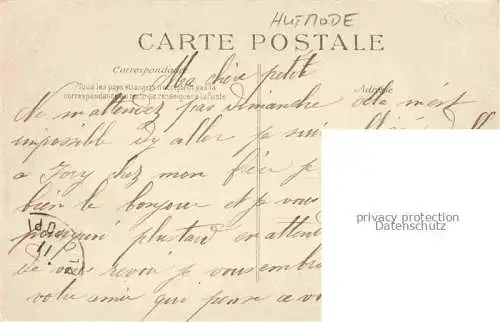 HUTMODE
CARTE POSTALE
Correspondance
Adresse
Tous les pays étrangers n'acceptent pas la
correspondance au recto se renseigner à la Poste
Ma chère petit
Ne m'attendez pas dimanche cela m'est
impossible d'y aller je suis
a Ivry chez mon frère je
bien le bonjour et je vous
pourquoi plus tard en attend
de vous revoir je vous emb
votre amie qui pense a vo
privacy protection
Datenschutz